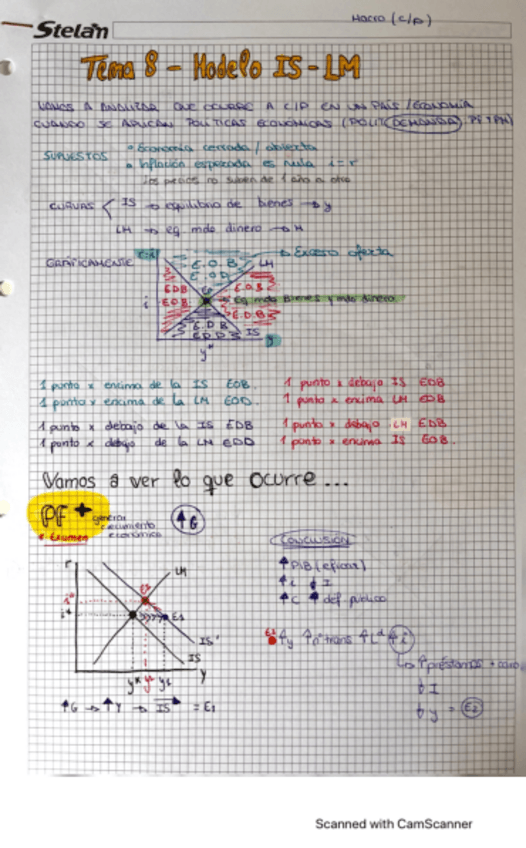 Macro (c/p)
Stelan
Tema 8 - Modelo IS-LM
VAMOS A ANALIZAR QUE OCURRE A C/P EN UN PAÍS/ECONOMÍA
CUANDO SE APLICAN POLITICAS ECONÓMICAS (POLIT. DEMANDA) PF Y PM)
SUPUESTOS • Economía cerrada / abierta
• Inflación esperada es nula i=r
los precios no suben de 1 año a otro
CURVAS IS → equilibrio de bienes → y
LM → eq. mdo dinero → M
GRÁFICAMENTE
Exceso oferta
E.O.B
E.O.D
LM
EDB
E.O.B
i
Eq. mdo bienes y mdo dinero
E.D.B
E.D.D
IS
y
y*
1 punto x encima de la IS EOB.
1 punto x encima de la LM EOD.
1 punto x debajo de la IS EDB
1 punto x debajo de la LM EDD
1 punto x debajo IS EDB
1 punto x encima LM
1 punto x debajo LM
1 punto x encima IS EOB.
Vamos a ver lo que ocurre...
PF+ generar crecimiento económico ↑G
* Examen
CONCLUSIÓN
↑PIB (eficaz)
↑i ↓I
↑C ↑ def. público
r
LM
E2
E1
IS'
IS
y
↑G → ↑Y → IS = E1
E2 ↑y ↑nº trans ↑Ld ↑i
↑préstamos + caro
↓I
↓y = E2
Scanned with CamScanner